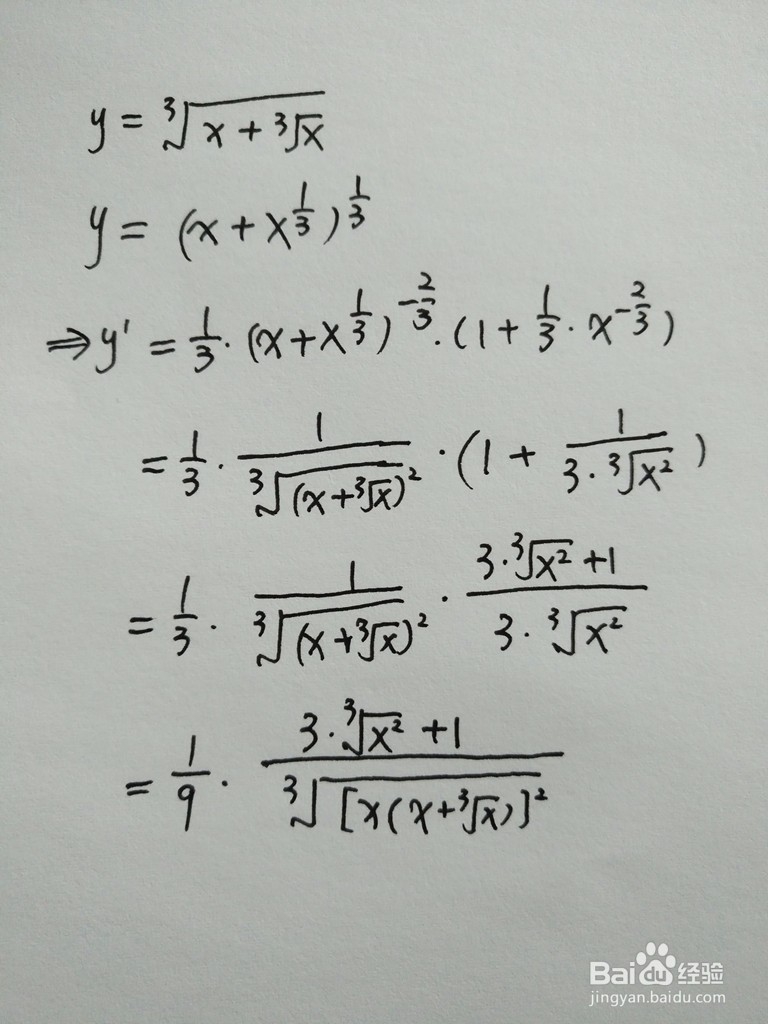 y = ∛(x + ∛x)
y = (x + x^(1/3))^(1/3)
⇒ y' = 1/3 · (x + x^(1/3))^(-2/3) · (1 + 1/3 · x^(-2/3))
= 1/3 · 1/∛((x + ∛x)²) · (1 + 1/(3 · ∛(x²)))
= 1/3 · 1/∛((x + ∛x)²) · (3 · ∛(x²) + 1)/(3 · ∛(x²))
= 1/9 · (3 · ∛(x²) + 1)/∛([x(x + ∛x)]²)
Bai du 经验
jingyan.baidu.com